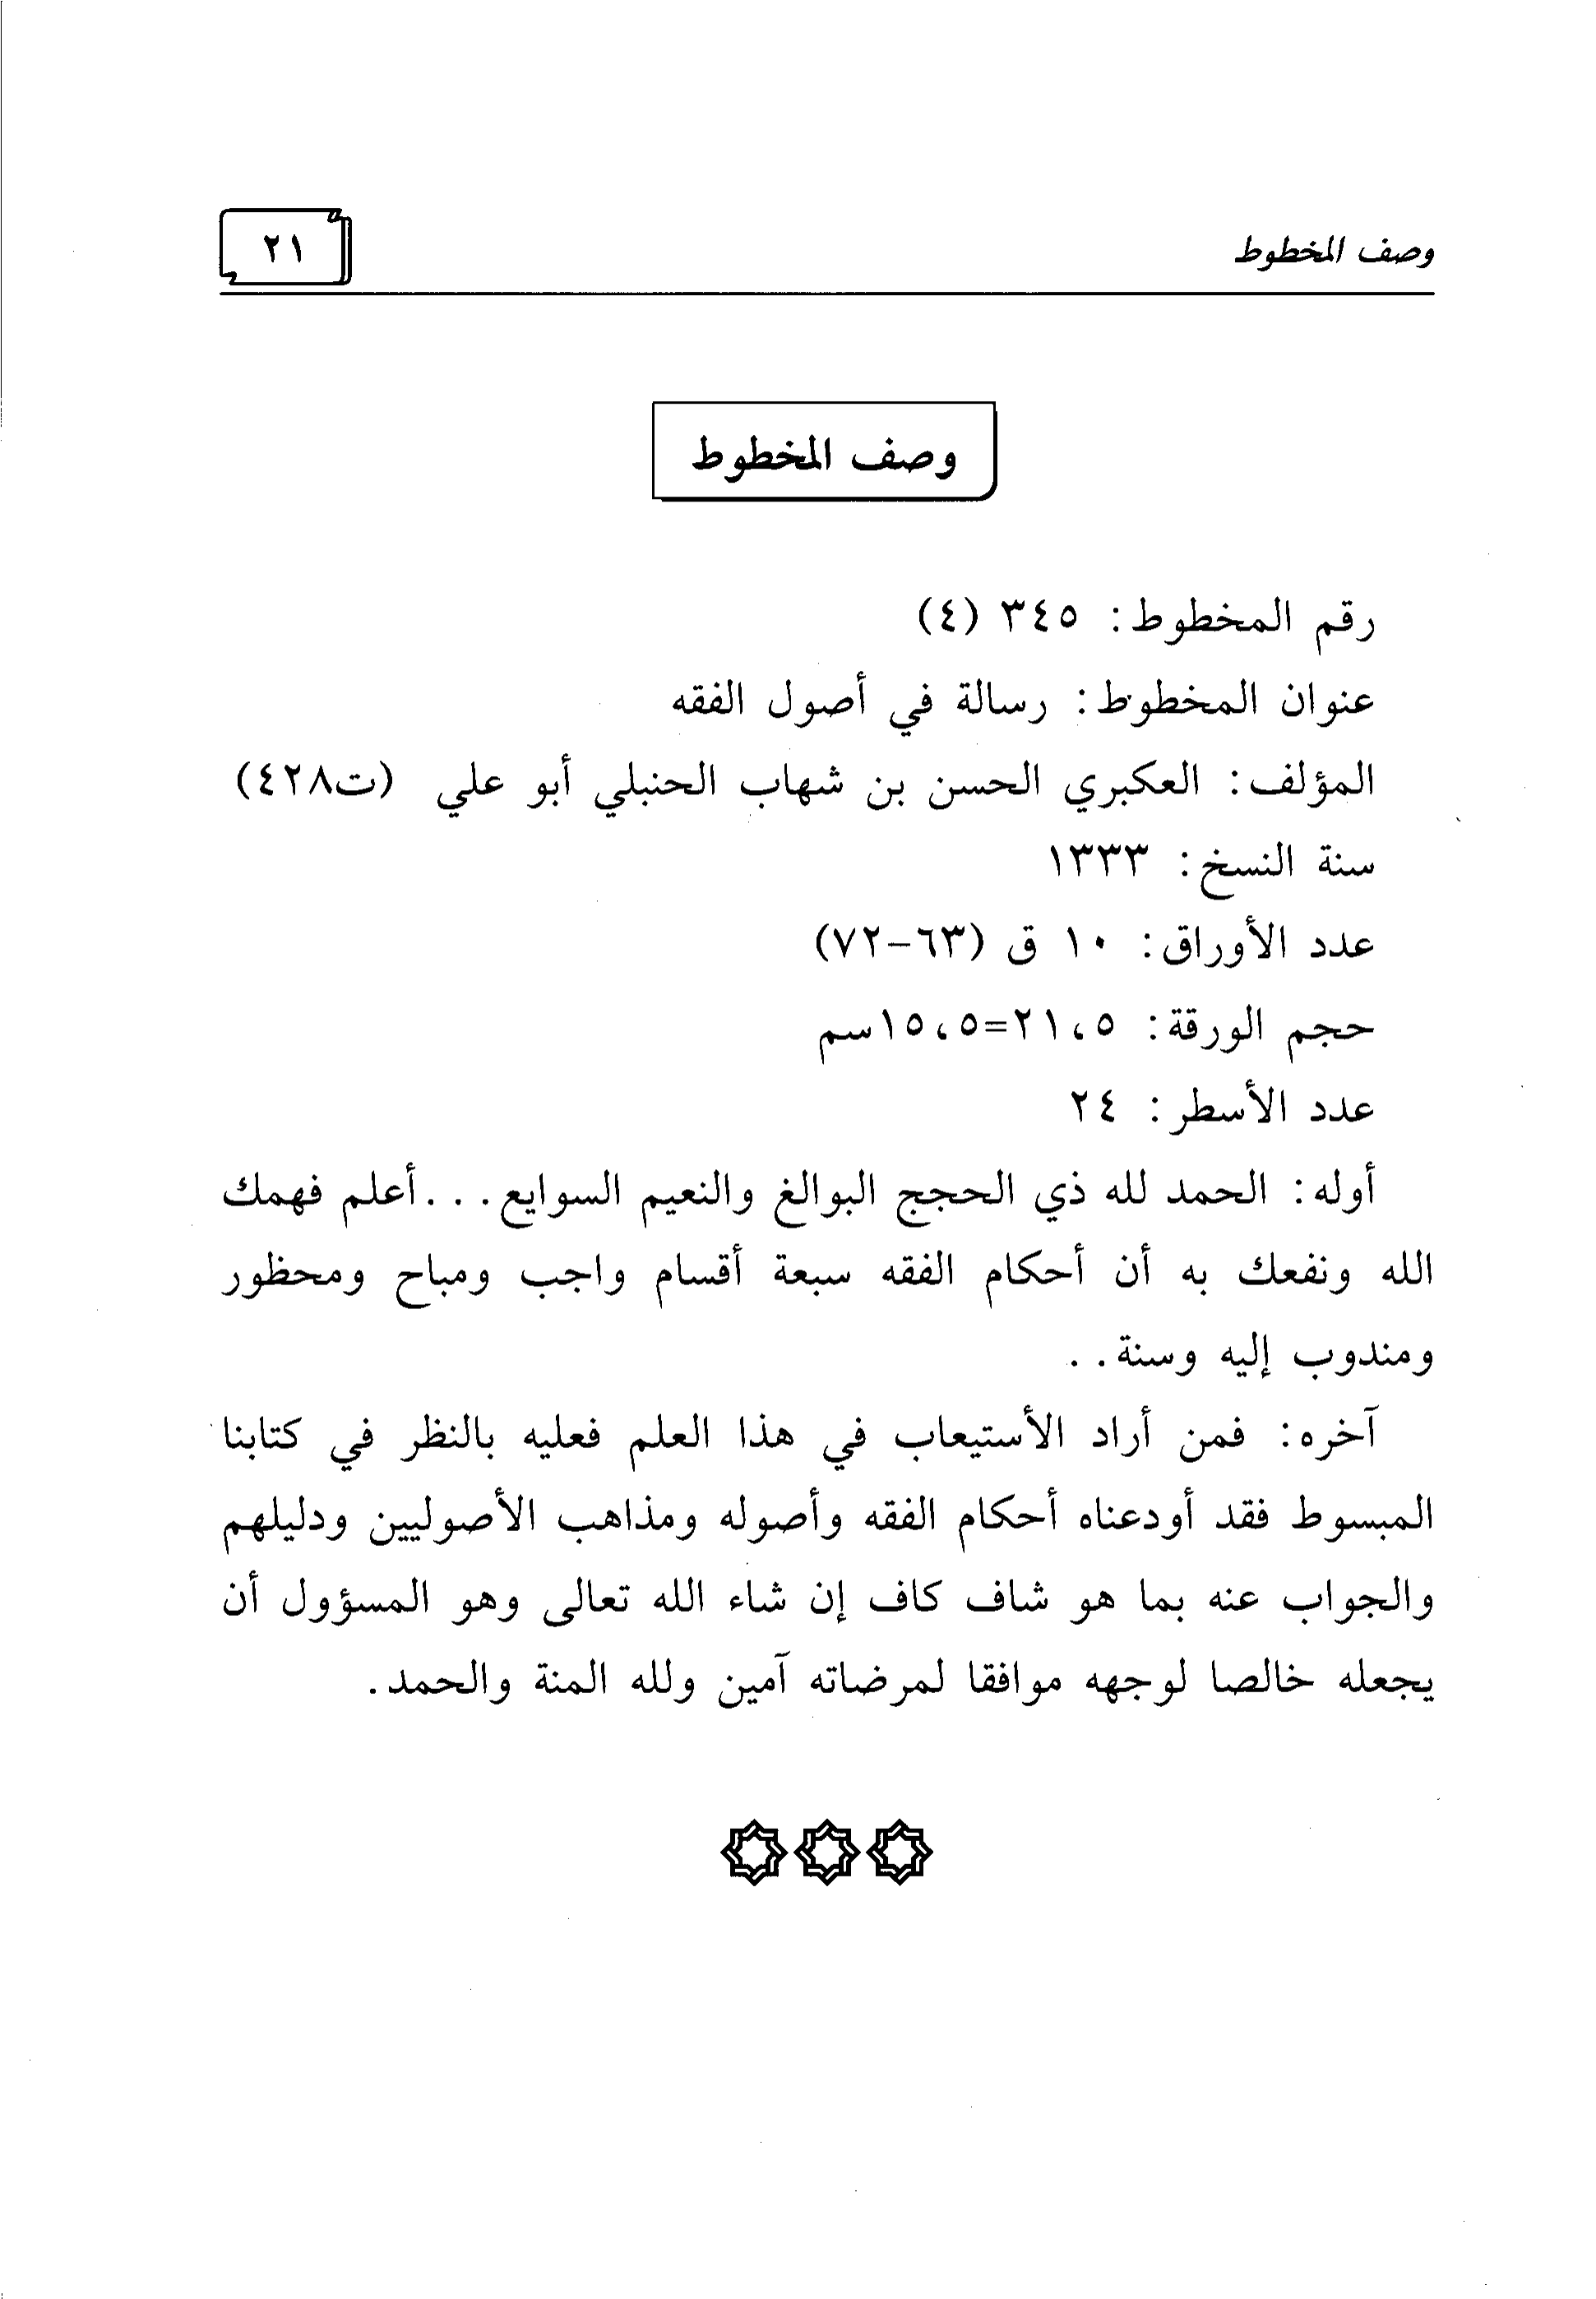 وصف المخطوط
٢١
وصف المخطوط
رقم المخطوط: ٣٤٥ (٤)
عنوان المخطوط: رسالة في أصول الفقه
المؤلف: العكبري الحسن بن شهاب الحنبلي أبو علي (ت٤٢٨)
سنة النسخ: ١٣٣٣
عدد الأوراق: ١٠ ق (٦٣-٧٢)
حجم الورقة: ٢١،٥=١٥،٥سم
عدد الأسطر: ٢٤
أوله: الحمد لله ذي الحجج البوالغ والنعيم السوايع...أعلم فهمك
الله ونفعك به أن أحكام الفقه سبعة أقسام واجب ومباح ومحظور
ومندوب إليه وسنة..
آخره: فمن أراد الأستيعاب في هذا العلم فعليه بالنظر في كتابنا
المبسوط فقد أودعناه أحكام الفقه وأصوله ومذاهب الأصوليين ودليلهم
والجواب عنه بما هو شاف كاف إن شاء الله تعالى وهو المسؤول أن
يجعله خالصا لوجهه موافقا لمرضاته آمين ولله المنة والحمد.